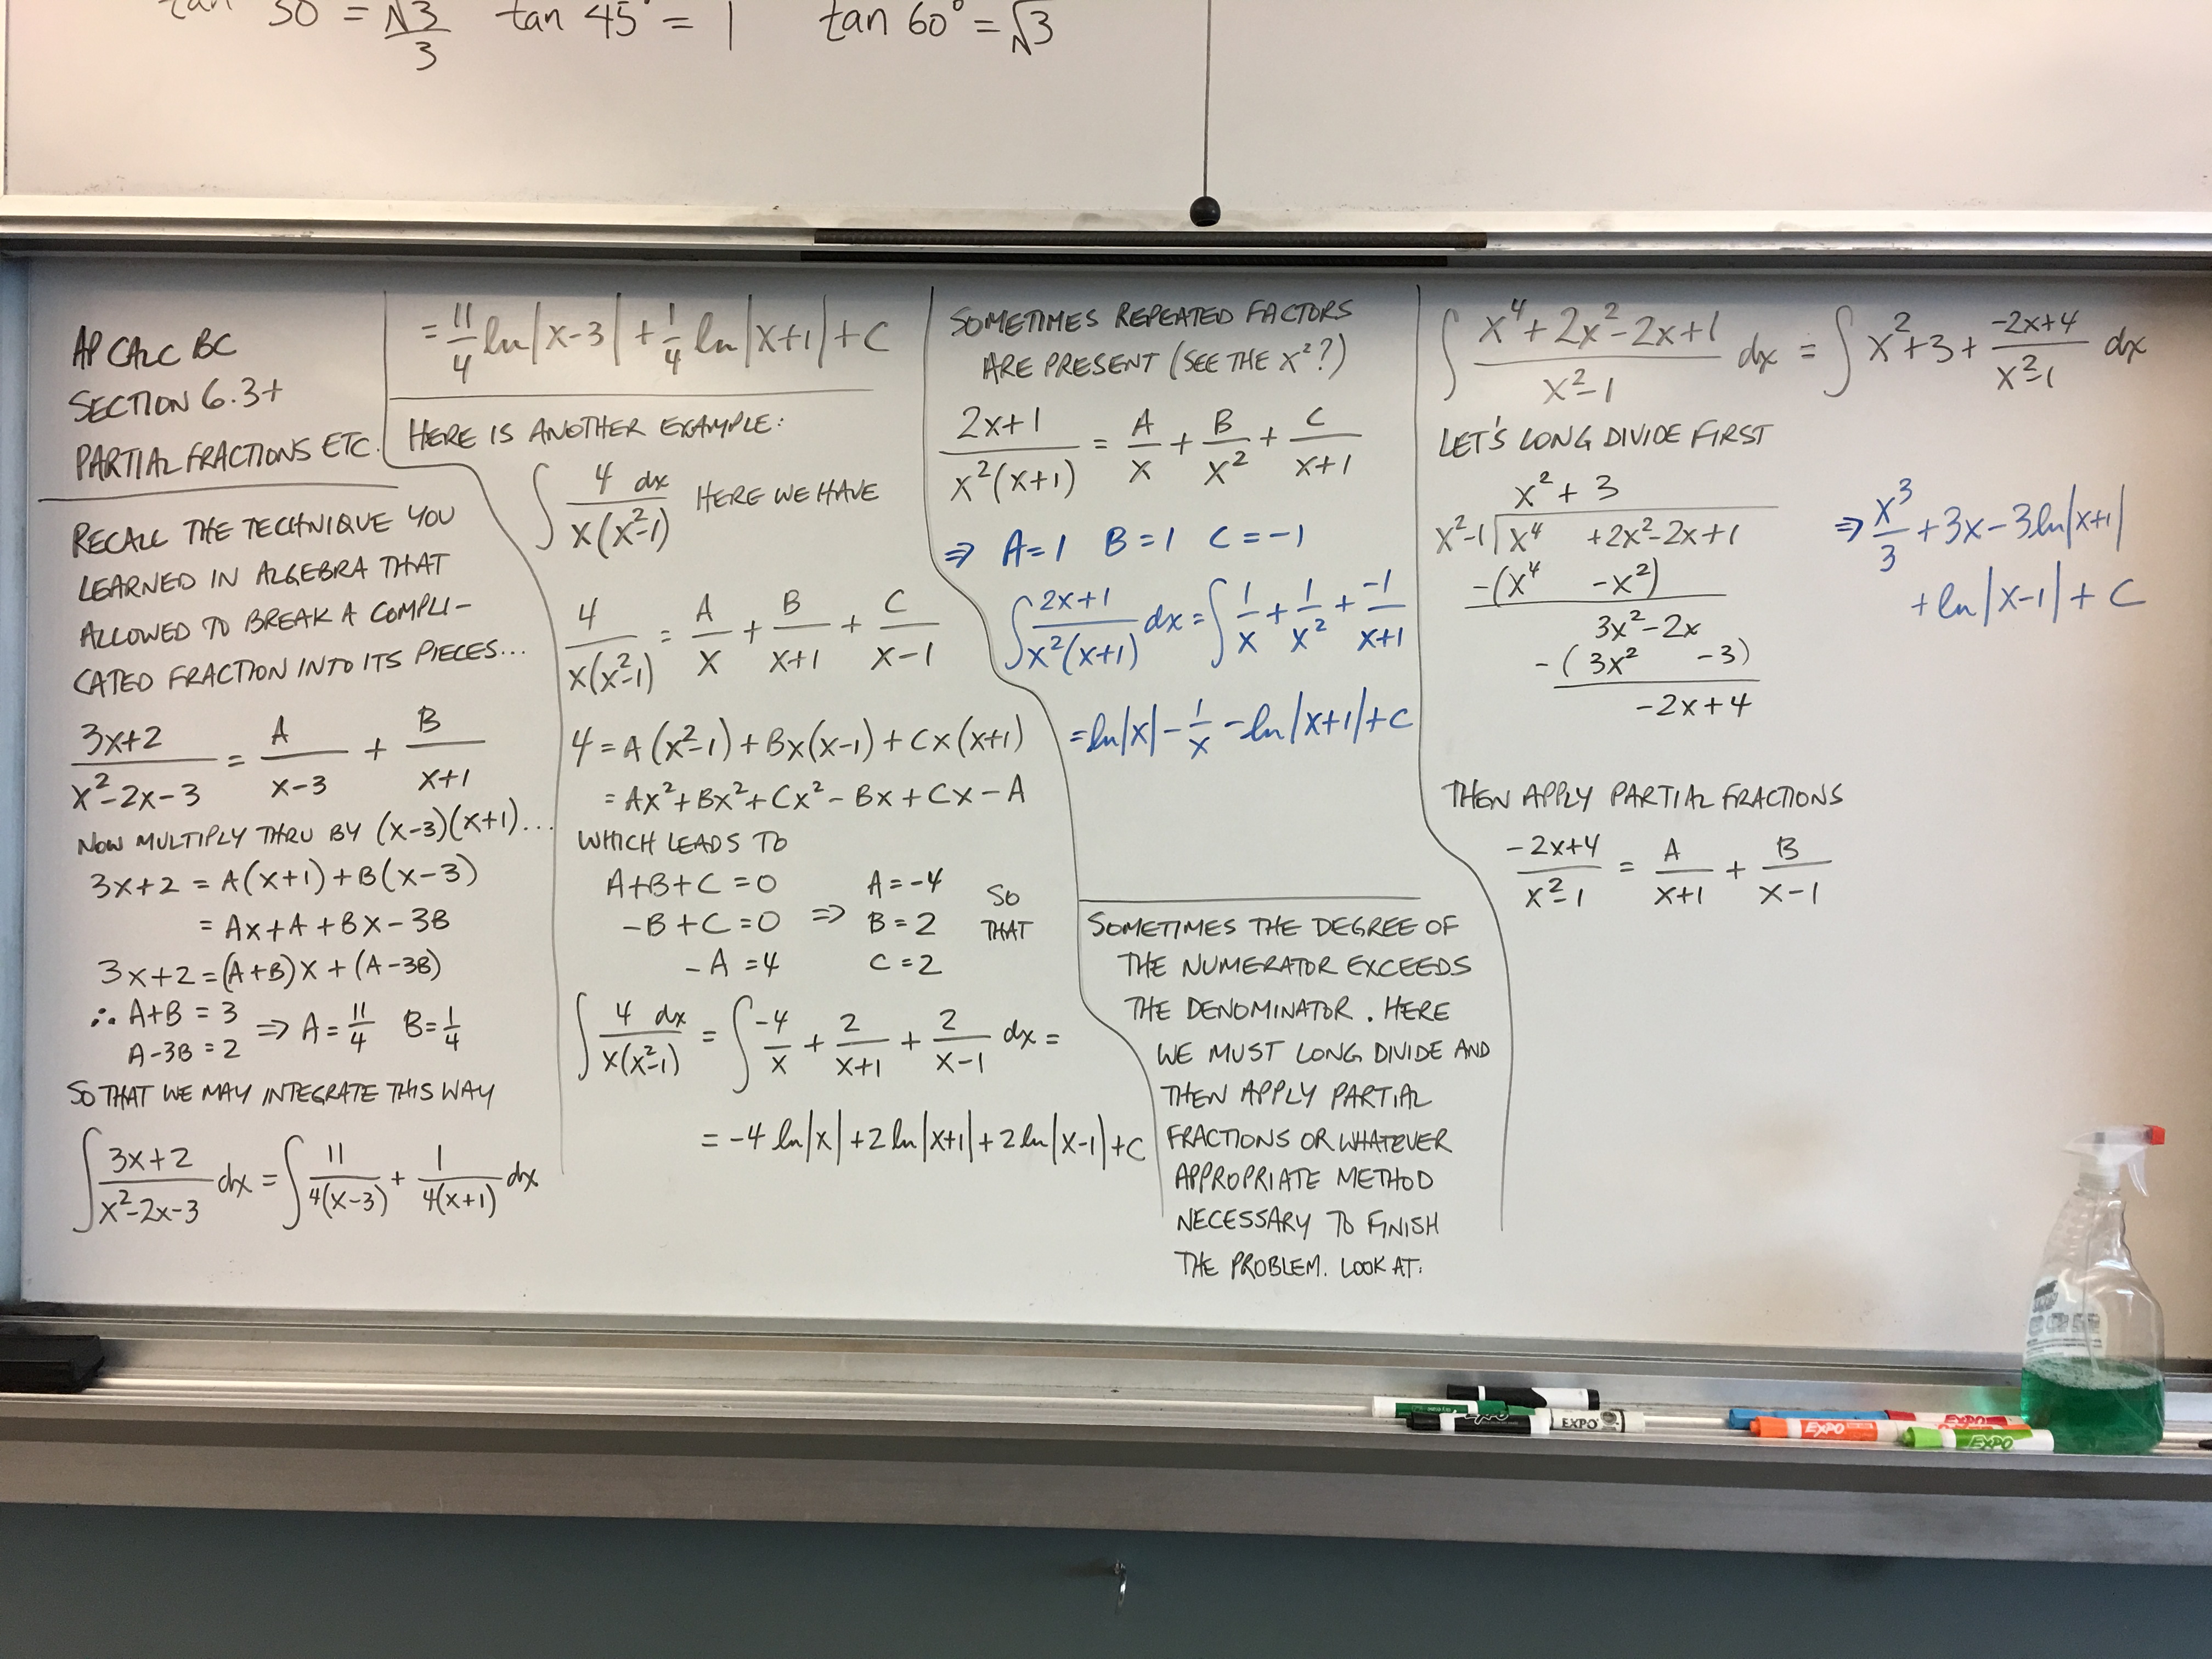 tan 30 = √3/3 tan 45° = 1 tan 60° = √3
AP CALC BC
SECTION 6.3+
PARTIAL FRACTIONS ETC.
RECALL THE TECHNIQUE YOU
LEARNED IN ALGEBRA THAT
ALLOWED TO BREAK A COMPLI-
CATED FRACTION INTO ITS PIECES...
(3x+2)/(x²-2x-3) = A/(x-3) + B/(x+1)
NOW MULTIPLY THRU BY (x-3)(x+1)...
3x+2 = A(x+1)+B(x-3)
= Ax+A+Bx-3B
3x+2=(A+B)x+(A-3B)
∴ A+B = 3
A-3B = 2 ⇒ A=11/4 B=1/4
SO THAT WE MAY INTEGRATE THIS WAY
∫(3x+2)/(x²-2x-3) dx = ∫11/(4(x-3)) + 1/(4(x+1)) dx
= 11/4 ln|x-3| + 1/4 ln|x+1| + C
HERE IS ANOTHER EXAMPLE:
∫ 4 dx/(x(x²-1)) HERE WE HAVE
4/(x(x²-1)) = A/x + B/(x+1) + C/(x-1)
4 = A(x²-1)+Bx(x-1)+Cx(x+1)
= Ax²+Bx²+Cx²-Bx+Cx-A
WHICH LEADS TO
A+B+C=0 A=-4 SO
-B+C=0 ⇒ B=2 THAT
-A=4 C=2
∫ 4 dx/(x(x²-1)) = ∫ -4/x + 2/(x+1) + 2/(x-1) dx =
= -4 ln|x| + 2 ln|x+1| + 2 ln|x-1| + C
SOMETIMES REPEATED FACTORS
ARE PRESENT (SEE THE X²?)
(2x+1)/(x²(x+1)) = A/x + B/x² + C/(x+1)
⇒ A=1 B=1 C=-1
∫(2x+1)/(x²(x+1)) dx = ∫ 1/x + 1/x² + -1/(x+1)
= ln|x| - 1/x - ln|x+1| + C
SOMETIMES THE DEGREE OF
THE NUMERATOR EXCEEDS
THE DENOMINATOR. HERE
WE MUST LONG DIVIDE AND
THEN APPLY PARTIAL
FRACTIONS OR WHATEVER
APPROPRIATE METHOD
NECESSARY TO FINISH
THE PROBLEM. LOOK AT:
∫(x⁴+2x²-2x+1)/(x²-1) dx = ∫x²+3+(-2x+4)/(x²-1) dx
LET'S LONG DIVIDE FIRST
x²+3
x²-1)x⁴ +2x²-2x+1
-(x⁴ -x²)
3x²-2x
-(3x² -3)
-2x+4
THEN APPLY PARTIAL FRACTIONS
(-2x+4)/(x²-1) = A/(x+1) + B/(x-1)
⇒ x³/3 + 3x - 3ln|x+1|
+ ln|x-1| + C
EXPO
EXPO
EXPO
EXPO